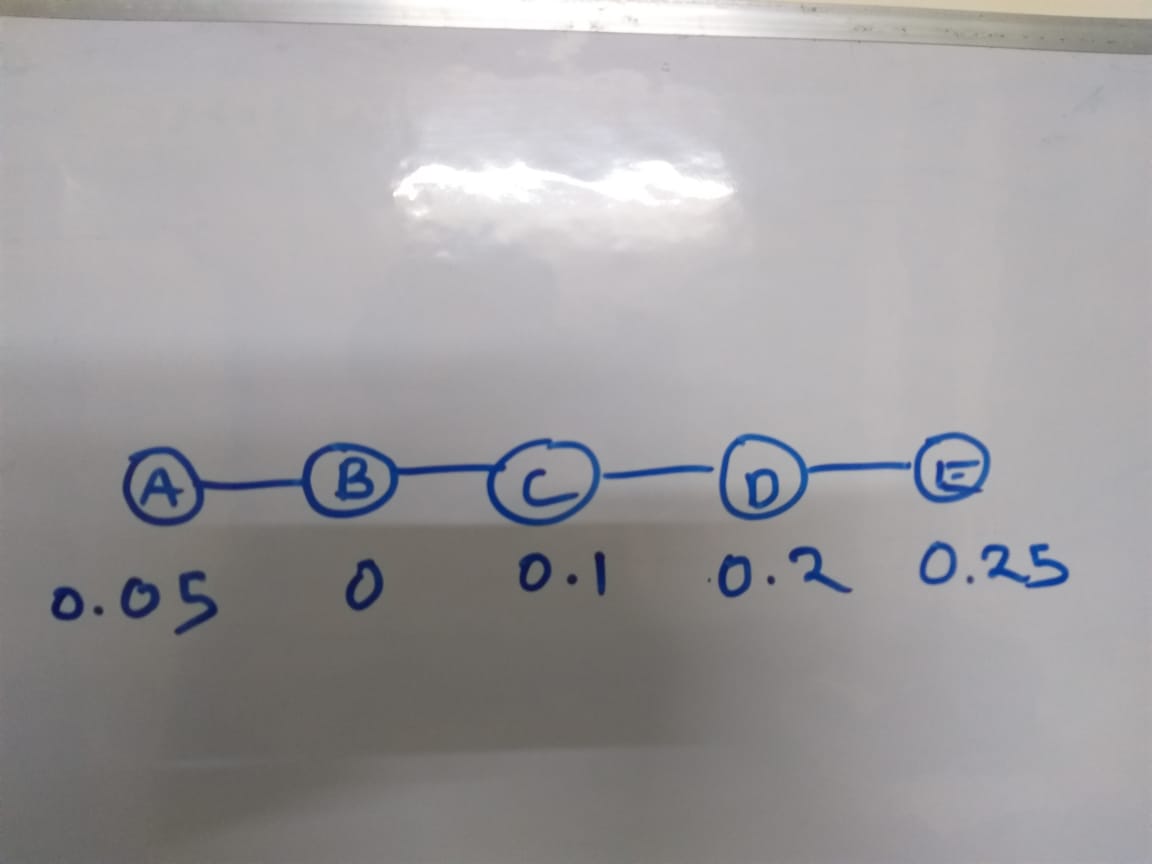 A B C D E
0.05 0 0.1 0.2 0.25